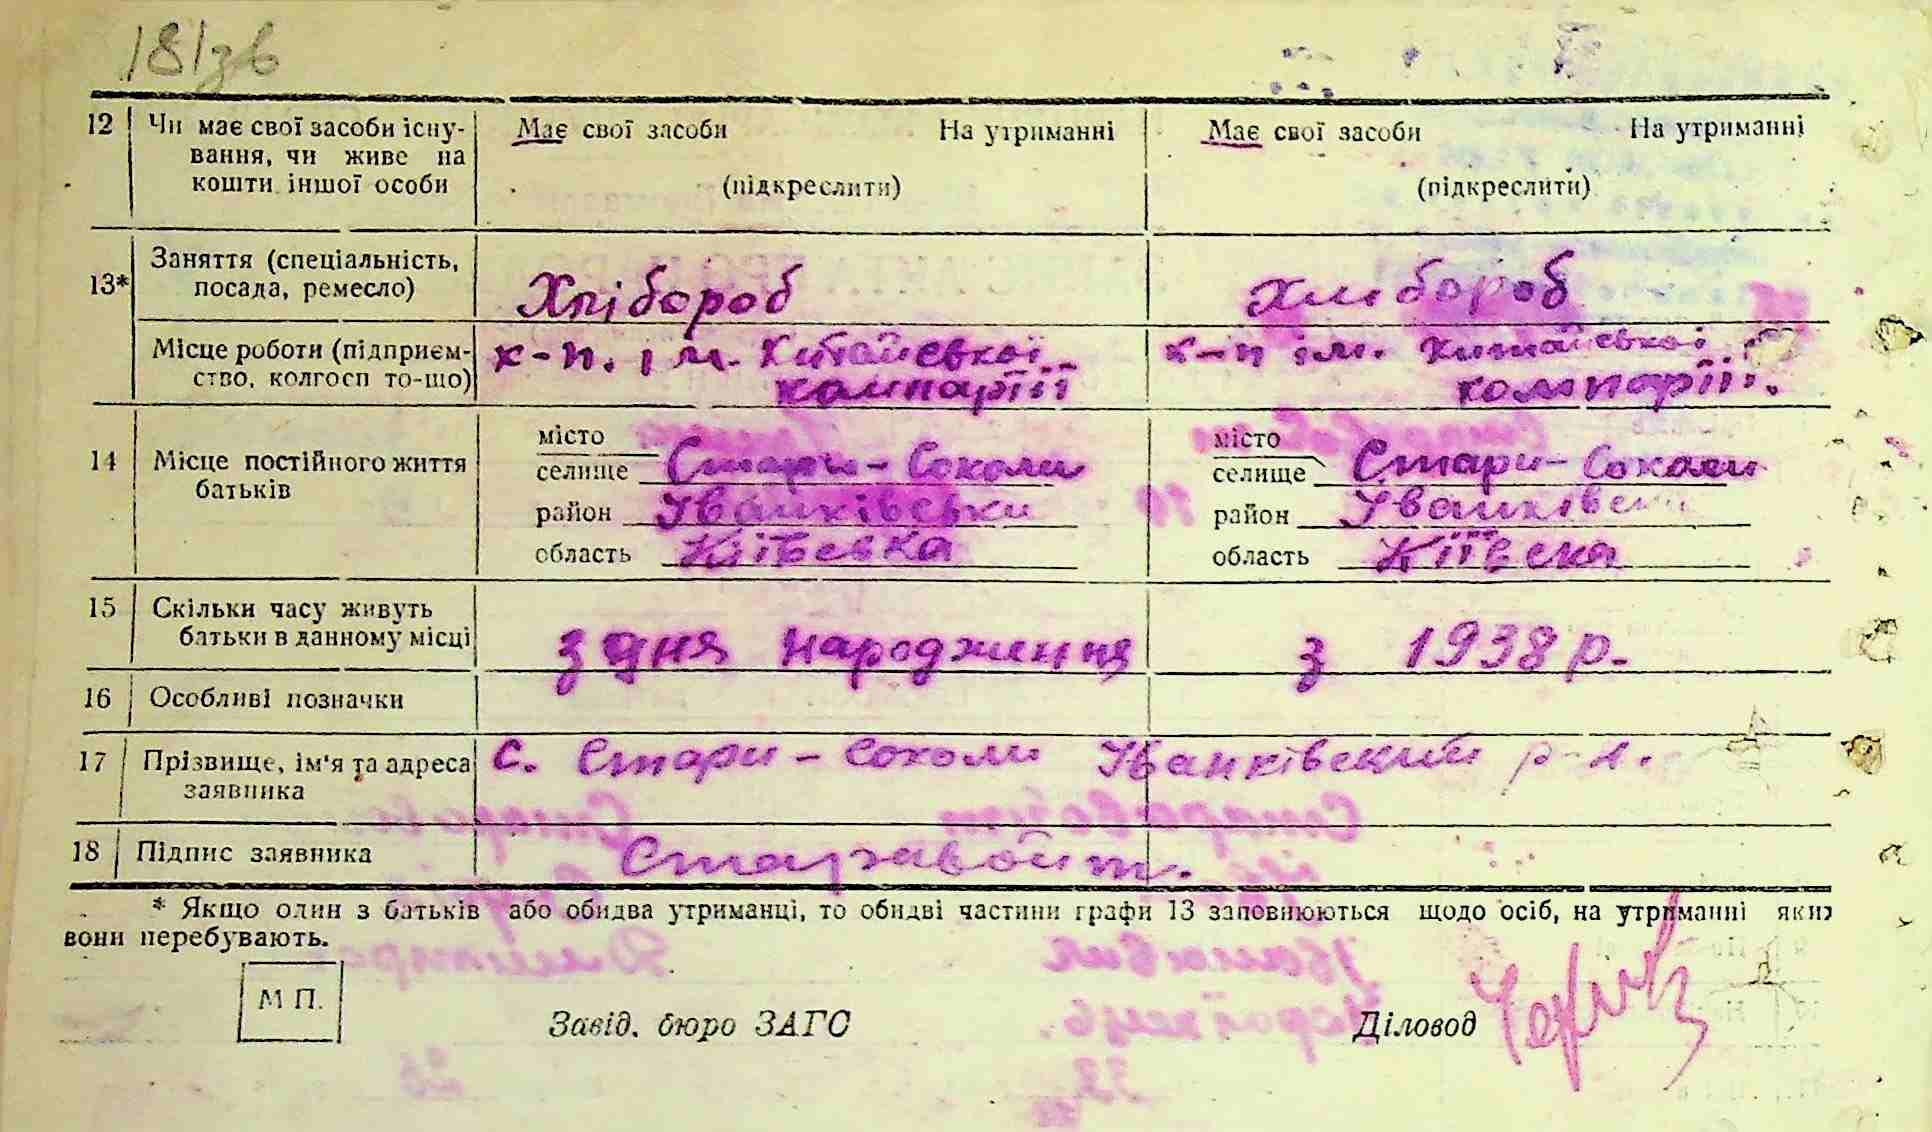 181зв
12 Чи має свої засоби існу-
вання, чи живе на
кошти іншої особи
Має свої засоби На утриманні
(підкреслити)
Має свої засоби На утриманні
(підкреслити)
13* Заняття (спеціальність,
посада, ремесло)
Хлібороб
Хлибороб
Місце роботи (підприєм-
ство, колгосп то-що)
к-п. ім. Китайської
компаріїї
к-п ім. Китайської
компарії.
14 Місце постійного життя
батьків
місто
селище Стари-Соколи
район Іванківськи
область Київська
місто
селище Стари-Соколи
район
область Київска
15 Скільки часу живуть
батьки в данному місці
з дня народження
з 1938 р.
16 Особливі позначки
17 Прізвище, ім'я та адреса
заявника
с. Стари-Соколи Іванківский р-н.
18 Підпис заявника
Старавойт.
* Якщо один з батьків або обидва утриманці, то обидві частини графи 13 заповнюються щодо осіб, на утриманні яких
вони перебувають.
М П.
Завід. бюро ЗАГС
Діловод